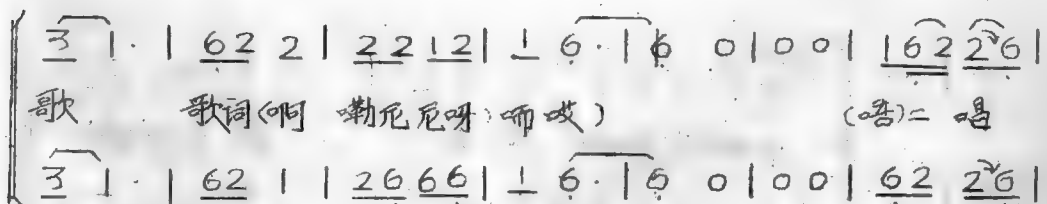 3 1 · | 6 2 2 | 2 2 1 2 | 1 6 · | 6 0 | 0 0 | 1 6 2 2 6 |
歌 歌词(啊 嘞尼尼呀 唡哎) (唔)二 唱
3 1 · | 6 2 1 | 2 6 6 6 | 1 6 · | 6 0 | 0 0 | 6 2 2 6 |